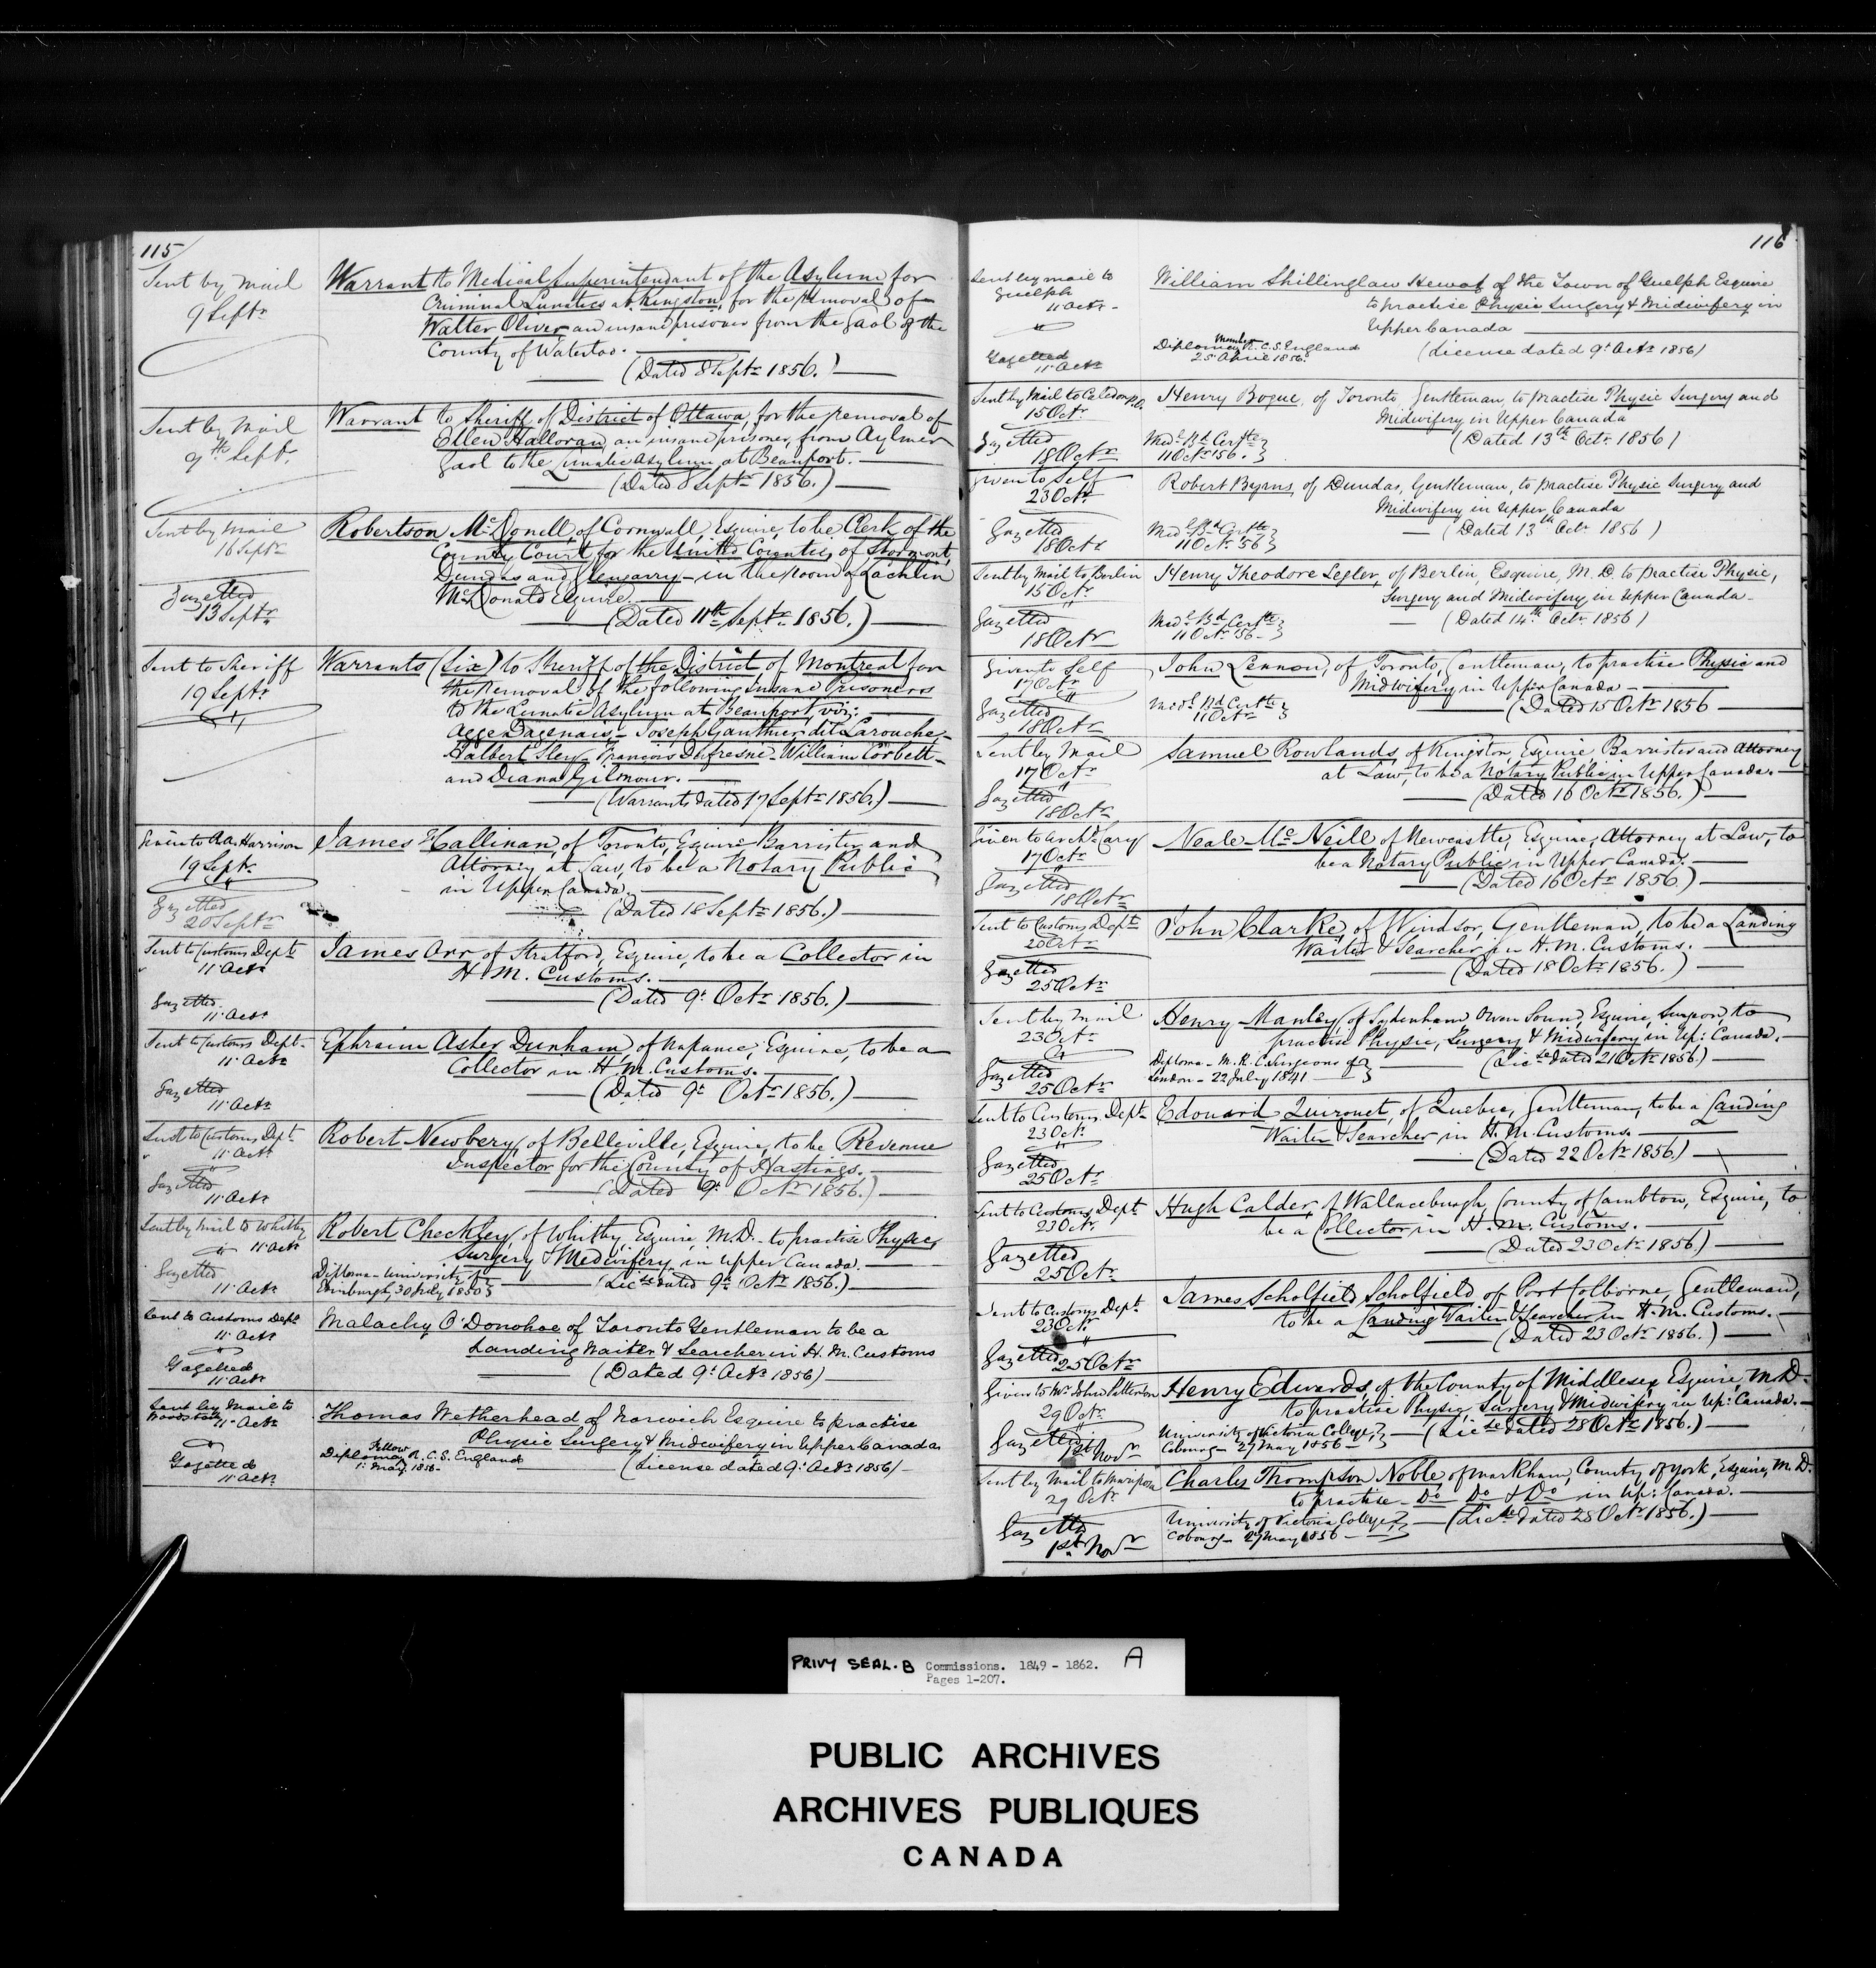 115
Sent by Mail
9 Septr
Warrant to Medical Superintendant of the Asylum for
Criminal Lunatics at Kingston, for the removal of
Walter Oliver an insane prisoner from the Gaol of the
County of Waterloo.
(Dated 8 Septr 1856.)
Sent by Mail
9th Septr.
Warrant to Sheriff of District of Ottawa, for the removal of
Ellen Halloran, an insane prisoner, from Aylmer
Gaol to the Lunatic Asylum at Beauport.
(Dated 8 Septr 1856.)
Sent by Mail
16 Septr
Gazetted
13 Septr
Robertson McDonell, of Cornwall, Esquire, to be Clerk of the
County Court for the United Counties of Stormont,
Dundas and Glengarry - in the room of Lachlin
McDonald Esquire.
(Dated 11th Septr 1856.)
Sent to Sheriff
19 Septr
Warrants (six) to Sheriff of the District of Montreal for
the removal of the following Insane Prisoners
to the Lunatic Asylum at Beauport, viz:
Dagenais - Joseph Gauthier dit Larouche -
Halbert - François Dufresne - William Corbett -
and Diana Gilmour.
(Warrants dated 17 Septr 1856.)
Given to AA. Harrison
19 Septr
Gazetted
20 Septr
James Hallinan, of Toronto, Esquire Barrister and
Attorney at Law, to be a Notary Public
in Upper Canada.
(Dated 18 Septr 1856.)
Sent to Customs Dept
11 Octr
Gazetted
11 Octr
James Orr, of Stratford, Esquire, to be a Collector in
H. M. Customs.
(Dated 9t Octr 1856.)
Sent to Customs Dept
11 Octr
Gazetted
11 Octr
Ephraim Asher Dunham, of Napanee, Esquire, to be a
Collector in H. M. Customs.
(Dated 9t Octr 1856.)
Sent to Customs Dept
11 Octr
Gazetted
11 Octr
Robert Newbery, of Belleville, Esquire, to be Revenue
Inspector for the County of Hastings.
(Dated 9t Octr 1856.)
Sent by Mail to Whitby
11 Octr
Gazetted
11 Octr
Robert Checkley, of Whitby Esquire, M.D. - to practise Physic,
Surgery & Medwifery, in Upper Canada.
Diploma - University of
Edinburgh, 30 July 1850
(Licse dated 9t Octr 1856.)
Sent to Customs Dept
11 Octr
Gazetted
11 Octr
Malachy O'Donohoe of Toronto Gentleman to be a
Landing Waiter & Searcher in H. M. Customs
(Dated 9t Octr 1856)
Sent by Mail to
Woodstock 11 Octr
Gazetted
11 Octr
Thomas Wetherhead of Norwich Esquire to practise
Physic Surgery & Midwifery in Upper Canada
Fellow
Diploma R. C. S. England
1t May 1856 -
(License dated 9t Octr 1856)
116
Sent by mail to
Guelph
11 Octr -
Gazetted
11 Octr
William Shillinglaw Hewat of the Town of Guelph Esquire
to practise Physic Surgery & Midwifery in
Upper Canada
Member
Diploma R. C. S. England
25 April 1856
(License dated 9t Octr 1856)
Sent by Mail to Caledon P.O.
15 Octr
Gazetted
18 Octr
Henry Bogue, of Toronto Gentleman, to practise Physic Surgery and
Midwifery in Upper Canada
Medl Bd Certfte
11 Octr '56.
(Dated 13th Octr 1856)
Given to Self
23 Octr
Gazetted
18 Octr
Robert Byrns, of Dundas, Gentleman, to practise Physic Surgery and
Midwifery in Upper Canada
Medl Bd Certfte
11 Octr 56
(Dated 13th Octr 1856)
Sent by Mail to Berlin
15 Octr
Gazetted
18 Octr
Henry Theodore Legler, of Berlin, Esquire, M. D. to practise Physic,
Surgery and Midwifery in Upper Canada -
Medl Bd Certfte
11 Octr '56 -
(Dated 14th Octr 1856)
Given to Self
17 Octr
Gazetted
18 Octr
John Lennon, of Toronto, Gentleman, to practise Physic and
Midwifery in Upper Canada -
Medl Bd Certfte
11 Octr
(Dated 15 Octr 1856
Sent by Mail
17 Octr
Gazetted
18 Octr
Samuel Rowlands, of Kingston, Esquire, Barrister and Attorney
at Law, to be a Notary Public in Upper Canada.
(Dated 16 Octr 1856.)
Given to Archd Cary
17 Octr
Gazetted
18 Octr
Neale McNeill of Newcastle, Esquire, Attorney at Law, to
be a Notary Public in Upper Canada.
(Dated 16 Octr 1856.)
Sent to Customs Dept
20 Octr
Gazetted
25 Octr
John Clarke, of Windsor, Gentleman, to be a Landing
Waiter & Searcher in H. M. Customs.
(Dated 18 Octr 1856.)
Sent by Mail
23 Octr
Gazetted
25 Octr
Henry Manley, of Sydenham Owen Sound, Esquire, Surgeon, to
practise Physic, Surgery & Midwifery in Up: Canada.
Diploma - M. R. C. Surgeons of
London - 22 July 1841
(Licse dated 21 Octr 1856.)
Sent to Customs Dept
23 Octr
Gazetted
25 Octr
Edouard Quirouet, of Quebec, Gentleman, to be a Landing
Waiter & Searcher in H. M. Customs.
(Dated 22 Octr 1856.)
Sent to Customs Dept
23 Octr
Gazetted
25 Octr
Hugh Calder, of Wallaceburgh, County of Lambton, Esquire, to
be a Collector in H. M. Customs.
(Dated 23 Octr 1856.)
Sent to Customs Dept
23 Octr
Gazetted
25 Octr
James Scholfield Scholfield of Port Colborne, Gentleman,
to be a Landing Waiter & Searcher in H. M. Customs.
(Dated 23 Octr 1856.)
Given to Mr John Patterson
29 Octr
Gazetted
1st Novr
Henry Edwards, of the County of Middlesex Esquire M.D.
to practise Physic, Surgery & Midwifery in Up: Canada.
University of Victoria College,
Cobourg - 27 May 1856 -
(Licse dated 28 Octr 1856.)
Sent by Mail to Mariposa
29 Octr
Gazetted
1st Novr
Charles Thompson Noble of Markham, County of York, Esquire, M. D.
to practise - Do Do & Do in Up: Canada.
University of Victoria College
Cobourg - 27 May 1856
(Licse dated 28 Octr 1856.)
PRIVY SEAL. B Commissions. 1849 - 1862. A
Pages 1-207.
PUBLIC ARCHIVES
ARCHIVES PUBLIQUES
CANADA